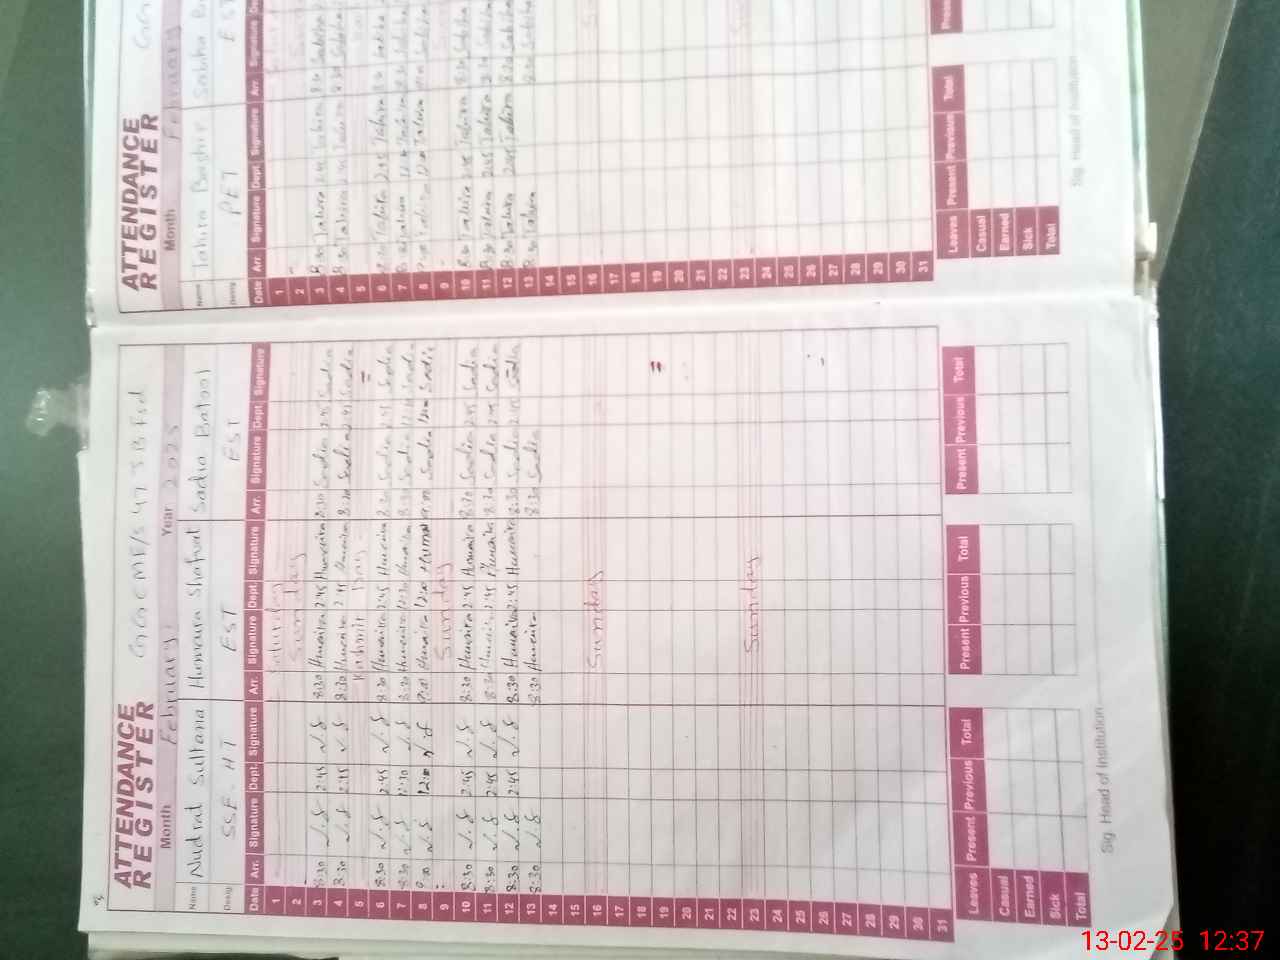 ATTENDANCE
REGISTER
Month February Year 2025
Name Nudrat Sultana Humaira Shafqat Sadia Batool
Desig: SSE. HT EST EST
Date Arr. Signature Dept. Signature Arr. Signature Dept. Signature Arr. Signature Dept. Signature
1
2 Sunday
3 8:30 N.S 2:45 N.S 8:30 Humaira 2:45 Humaira 8:30 Sadia 2:45 Sadia
4 8:30 N.S 2:45 N.S 8:30 Humaira 2:45 Humaira 8:30 Sadia 2:45 Sadia
5 Kashmir Day
6 8:30 N.S 2:45 N.S 8:30 Humaira 2:45 Humaira 8:30 Sadia 2:45 Sadia
7 8:30 N.S 12:30 N.S 8:30 Humaira 12:30 Humaira 8:30 Sadia Sadia
8 N.S N.S Humaira Sadia Sadia
9 Sunday
10 8:30 N.S 2:45 N.S 8:30 Humaira 2:45 Humaira 8:30 Sadia 2:45 Sadia
11 8:30 N.S 2:45 N.S 8:30 Humaira 2:45 Humaira 8:30 Sadia 2:45 Sadia
12 8:30 N.S 2:45 N.S 8:30 Humaira 2:45 Humaira 8:30 Sadia 2:45 Sadia
13 8:30 N.S 8:30 Humaira 8:30 Sadia
14
15
16 Sunday
17
18
19
20
21
22
23 Sunday
24
25
26
27
28
29
30
31
Leaves Present Previous Total Present Previous Total Present Previous Total
Casual
Earned
Sick
Total
Sig. Head of Institution
ATTENDANCE
REGISTER
Month February
Name Tahira Bashir Sabiha
Desig: PET EST
Date Arr. Signature Dept. Signature Arr. Signature
1
2
3 8:30 Tahira 2:45 Tahira 8:30 Sabiha
4 8:30 Tahira 2:45 Tahira 8:30 Sabiha
5
6 8:30 Tahira 2:45 Tahira 8:30 Sabiha
7 Tahira Tahira Sabiha
8 Tahira Tahira
9
10 8:30 Tahira 2:45 Tahira 8:30 Sabiha
11 8:30 Tahira 2:45 Tahira 8:30 Sabiha
12 8:30 Tahira 2:45 Tahira 8:30 Sabiha
13 8:30 Tahira 8:30 Sabiha
14
15
16
17
18
19
20
21
22
23
24
25
26
27
28
29
30
31
Leaves Present Previous Total
Casual
Earned
Sick
Total
Sig. Head of Institution
13-02-25 12:37